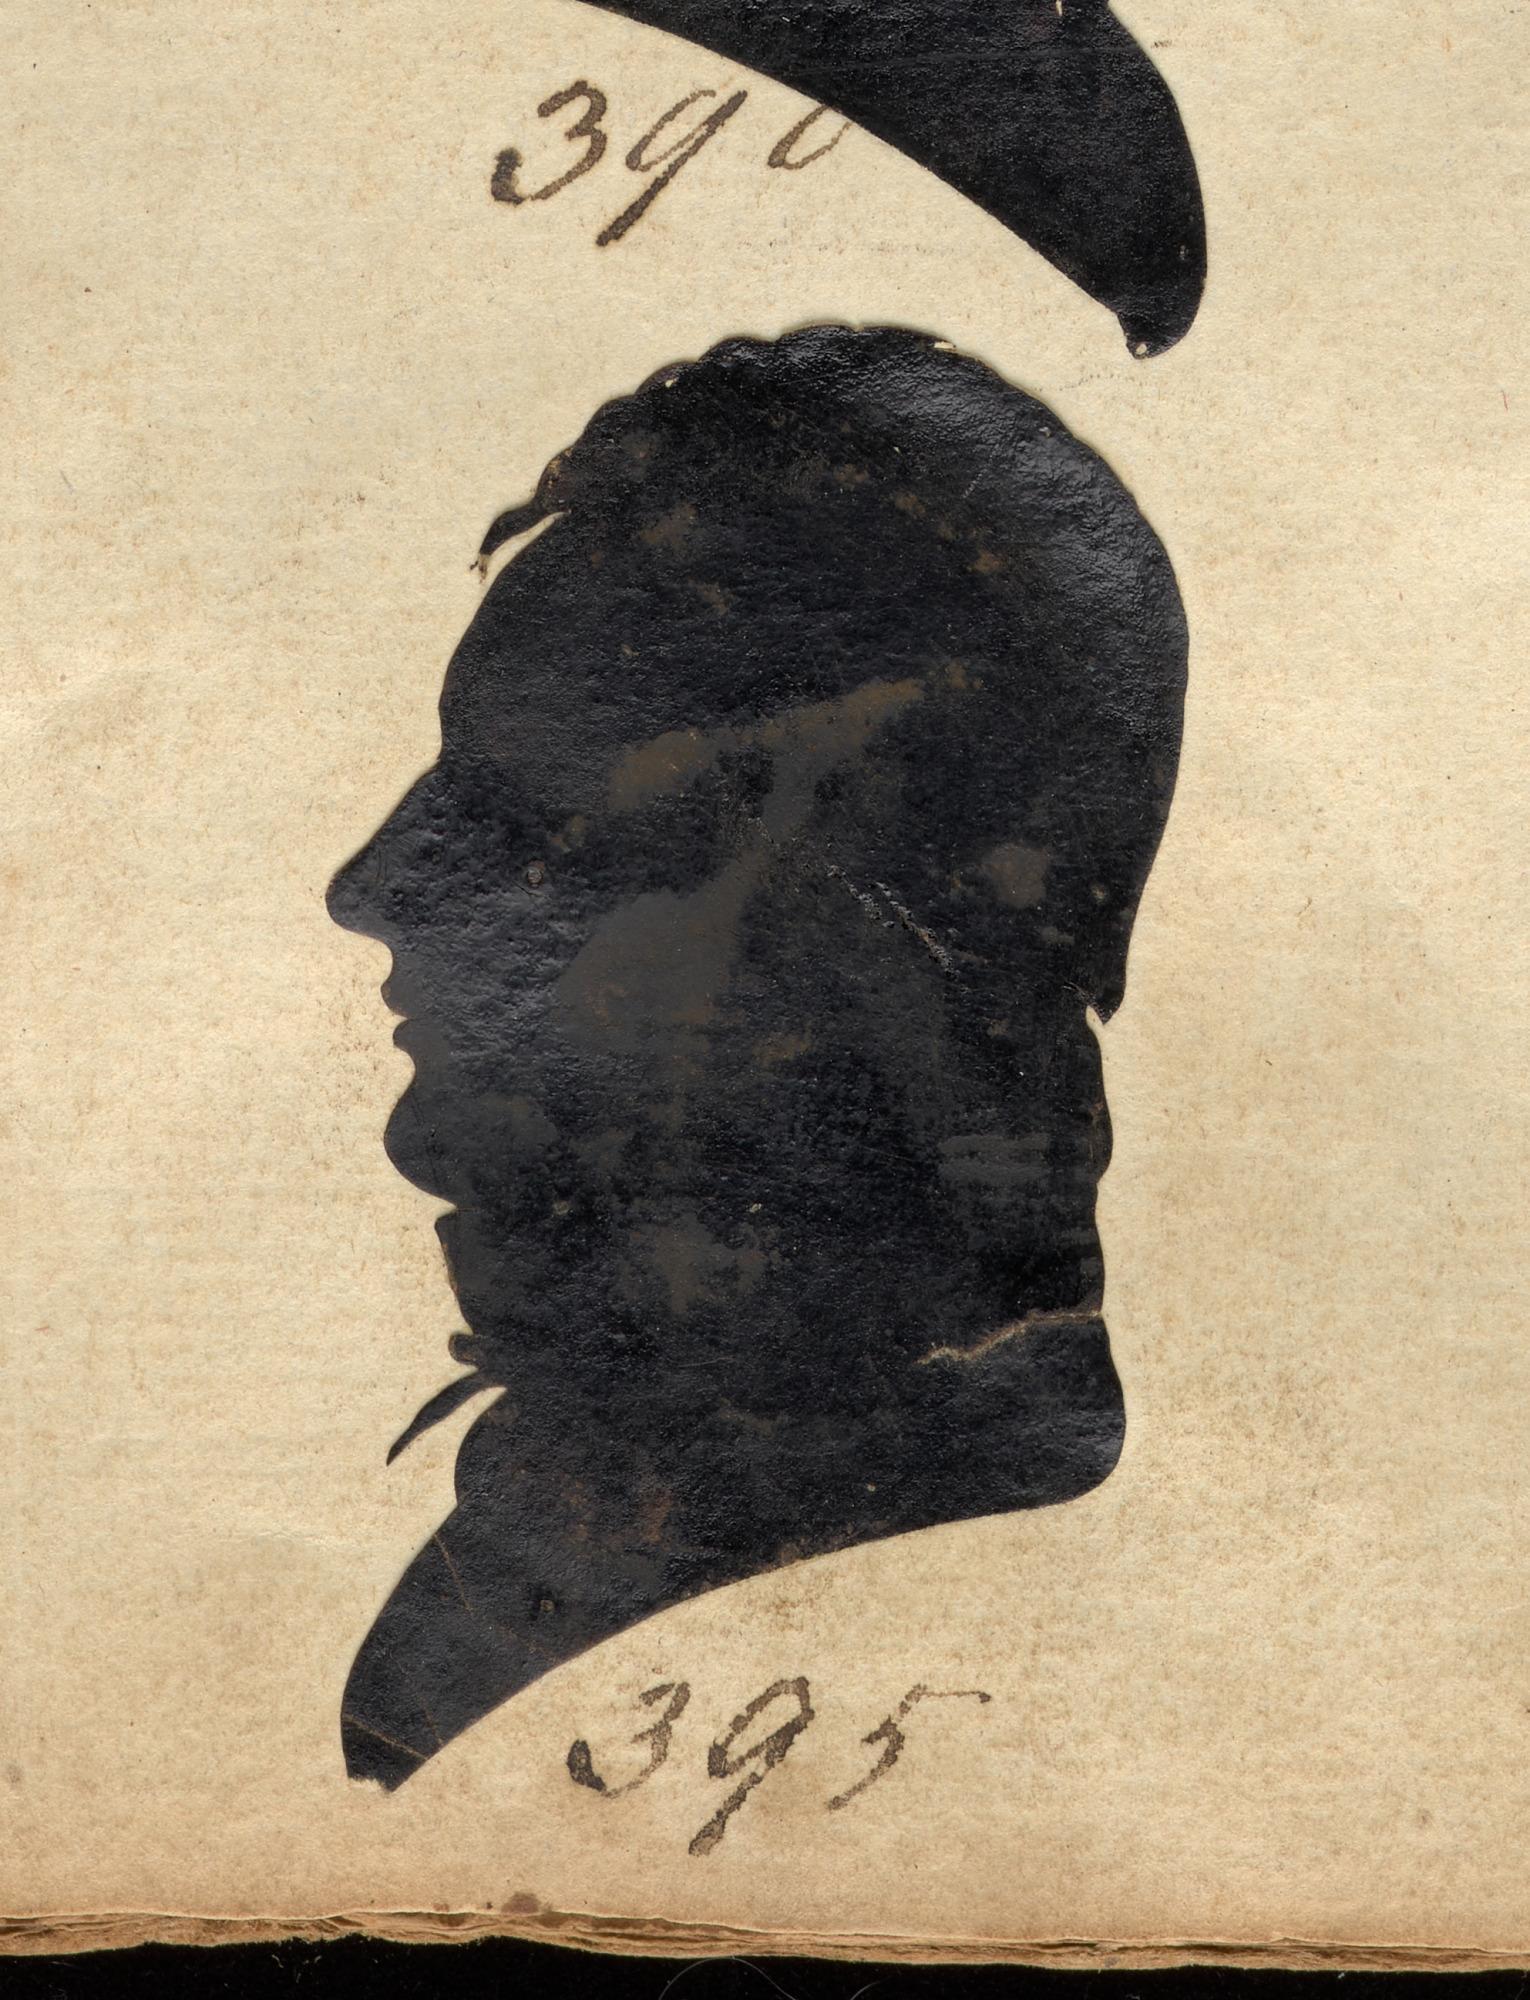 390
395